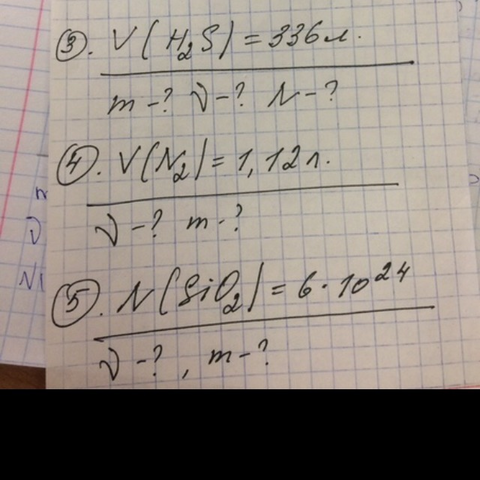 ③. V(H₂S) = 336 л.
m-? ν-? N-?
④. V(N₂) = 1,12 л.
ν-? m-?
⑤. N(SiO₂) = 6·10²⁴
ν-?, m-?